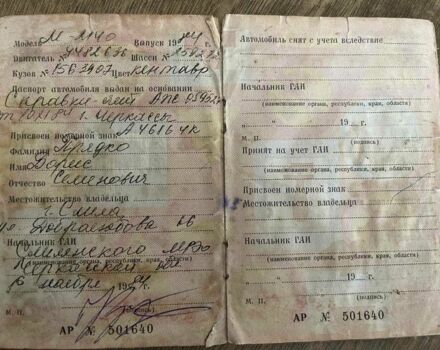 Модель М-2140 Выпуск 1984 г.
Двигатель 4482636 Шасси
Кузов 1563907 Цвет кентавр
Паспорт автомобиля выдан на основании
Справка-счет АПС
г. Черкассы
Присвоен номерной знак
Фамилия
Имя Борис
Отчество Семенович
Местожительство владельца
г. Смела
ул. Добролюбова 66
Начальник ГАИ
Смелянского МРЭО
(наименование органа, республики, края, области)
Черкасской
6 ноября 1984 г.
М. П. (подпись)
АР № 501640
Автомобиль снят с учета вследствие
Начальник ГАИ
(наименование органа, республики, края, области)
" " 19 г.
М. П. (подпись)
Принят на учет ГАИ
(наименование органа, республики, края, области)
Присвоен номерной знак
Местожительство владельца
Начальник ГАИ
(наименование органа, республики, края, области)
" " 19 г.
М. П. (подпись)
АР № 501640